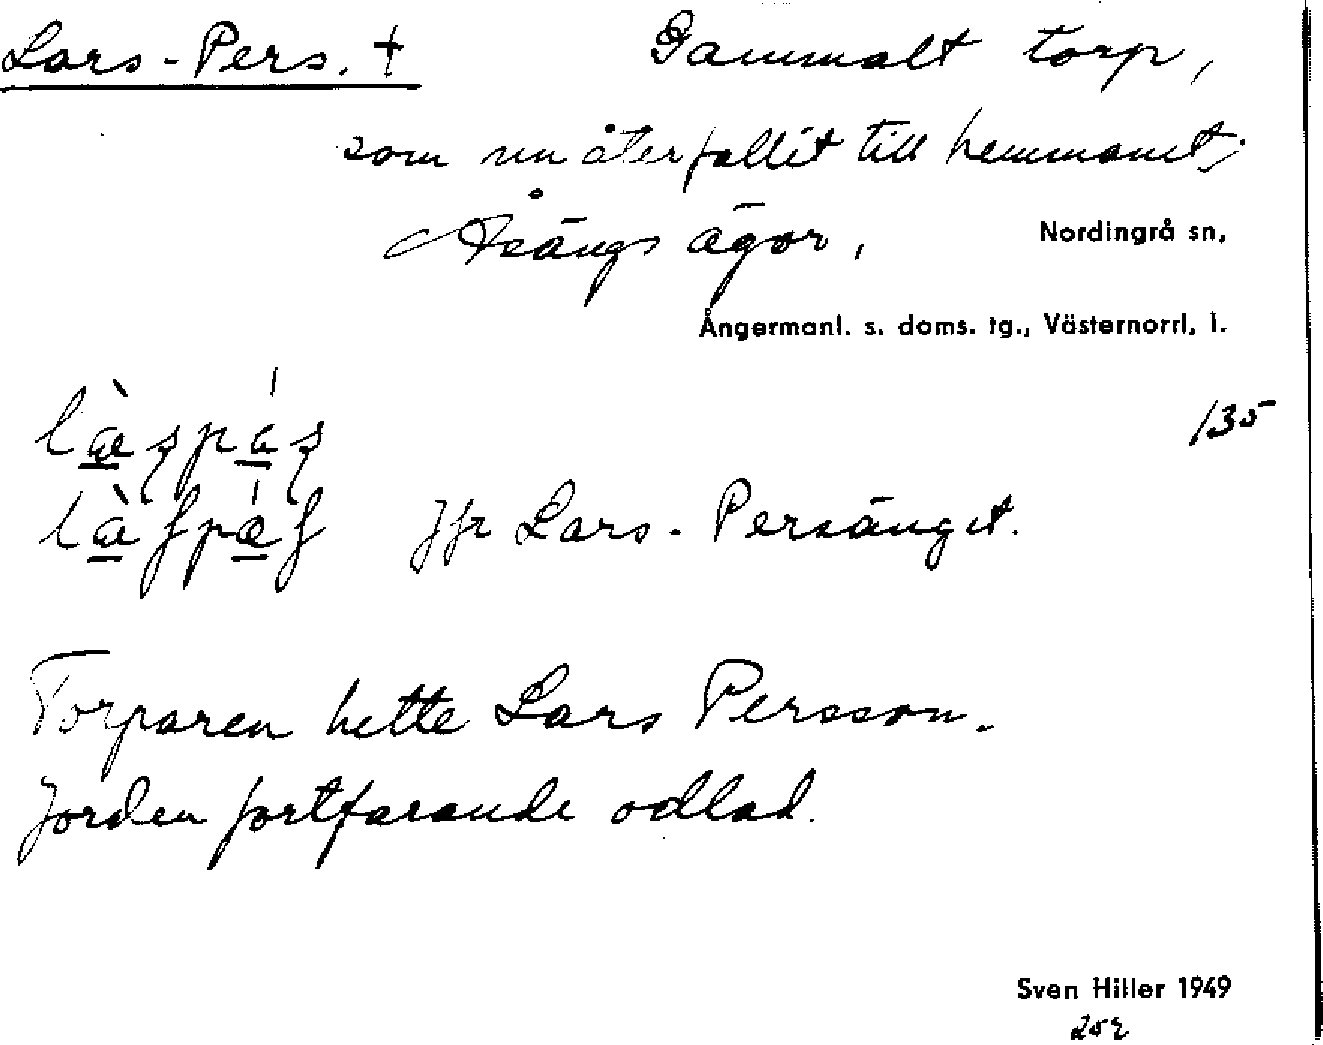 Lars-Pers. † Gammalt torp,
som nu återfallit till hemmanet,
Åsängs ägor, Nordingrå sn,
Ångermanl. s. doms. tg., Västernorrl. l.
135
Jfr Lars-Persänget.
Torparen hette Lars Persson.
Jorden fortfarande odlad.
Sven Hiller 1949